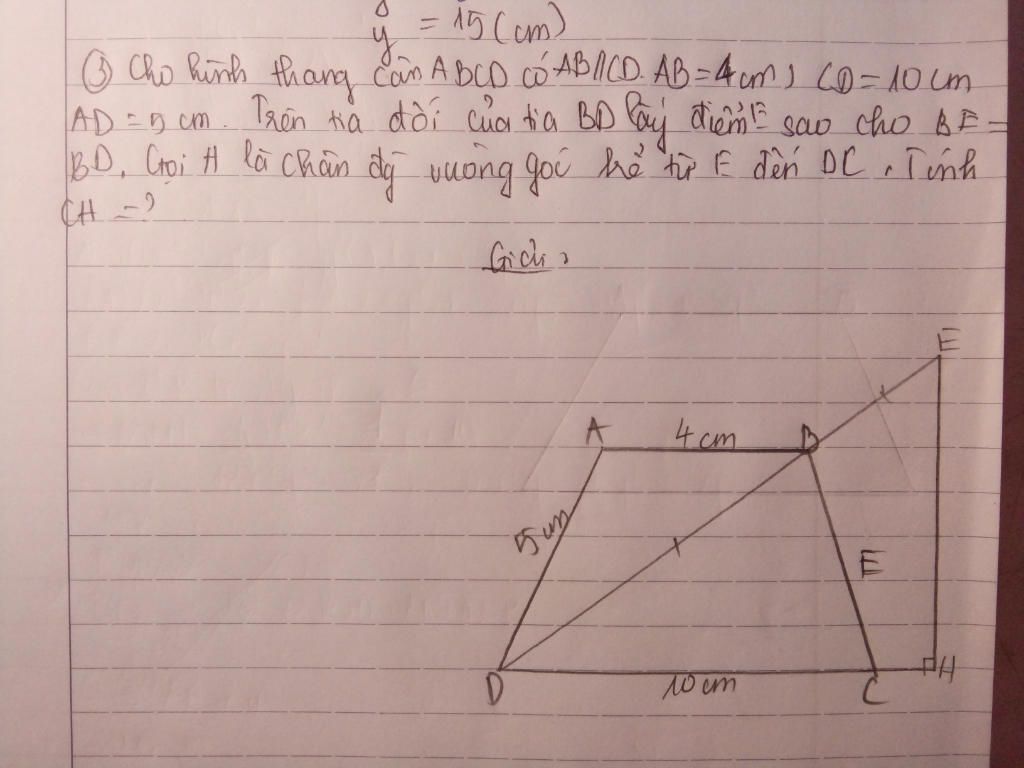 y = 15 (cm)
③ Cho hình thang cân ABCD có AB//CD. AB = 4cm, CD = 10cm
AD = 5 cm. Trên tia đối của tia BD lấy điểm E sao cho BE =
BD. Gọi H là chân đg vuông góc kẻ từ E đến DC. Tính
CH = ?
Giải:
E
A 4cm B
5cm
E
D 10cm C H